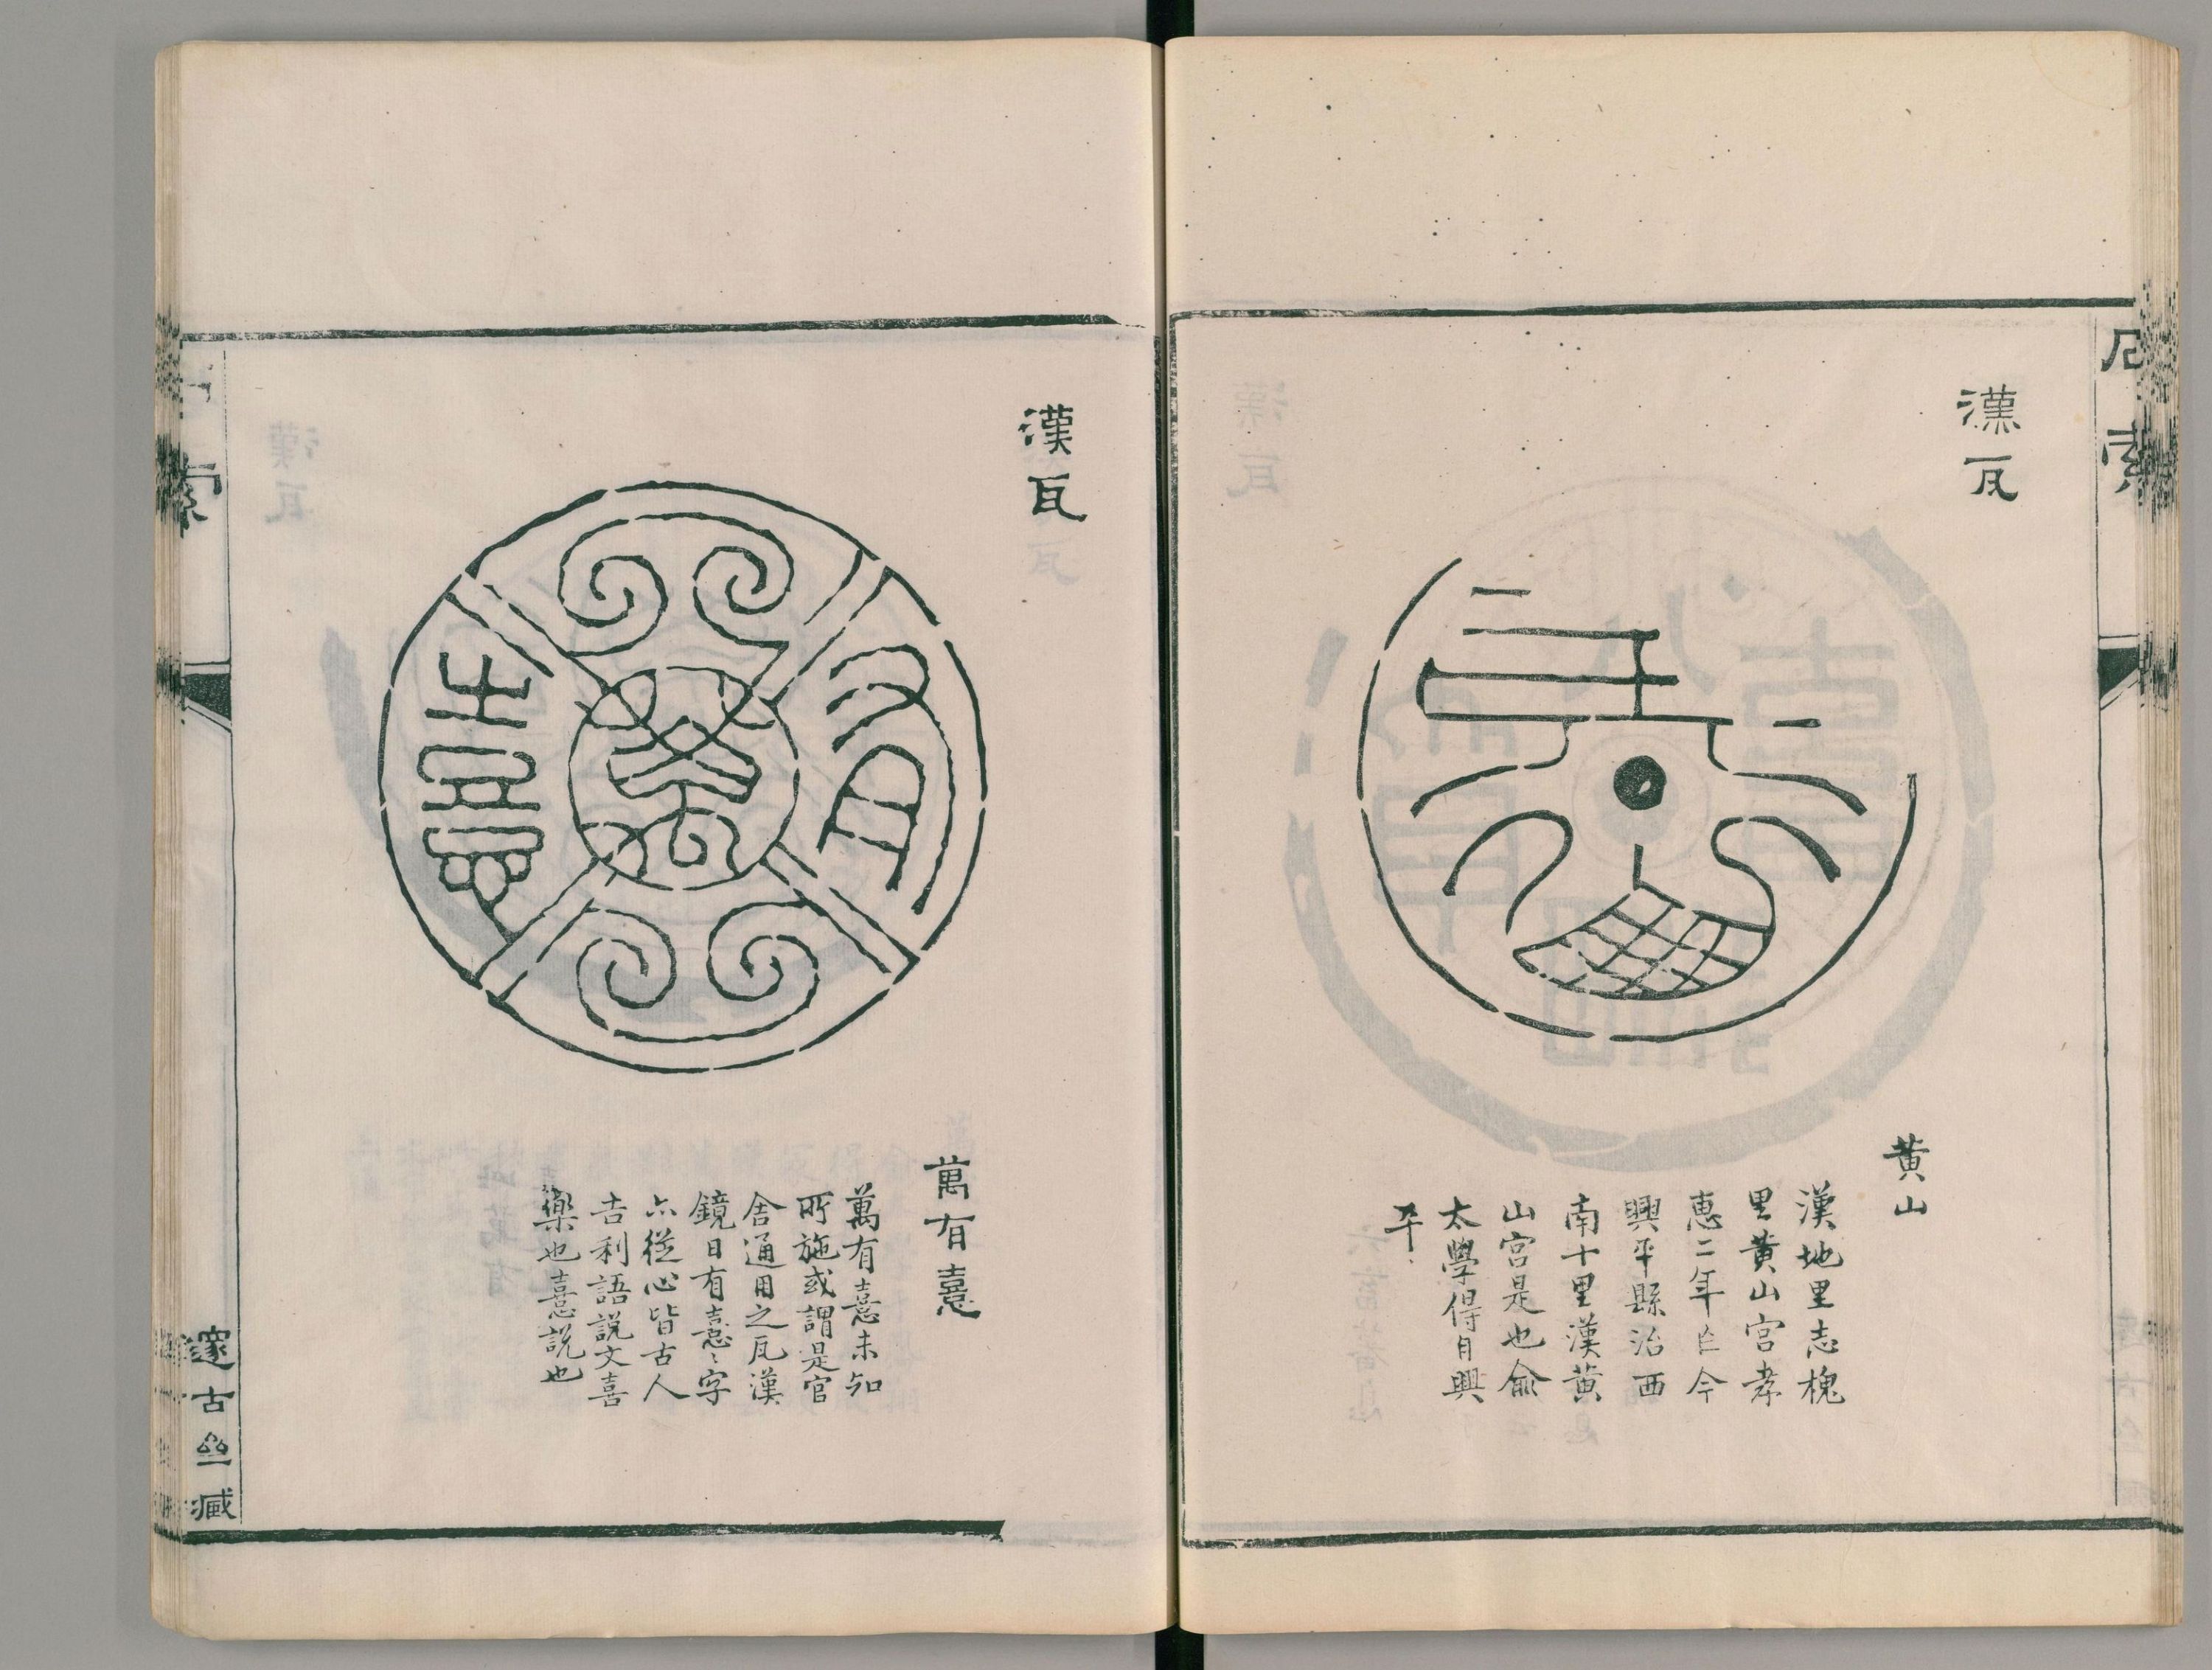 漢瓦
黃山
漢地里志槐
里黃山宮孝
惠二年㠯今
興平縣治西
南十里漢黃
山宮是也俞
太學得自興
平
漢瓦
萬有憙
萬有憙未知
所施或謂是官
舍通用之瓦漢
鏡曰有憙〻字
亦從心皆古人
吉利語說文喜
樂也憙說也
邃古亝臧